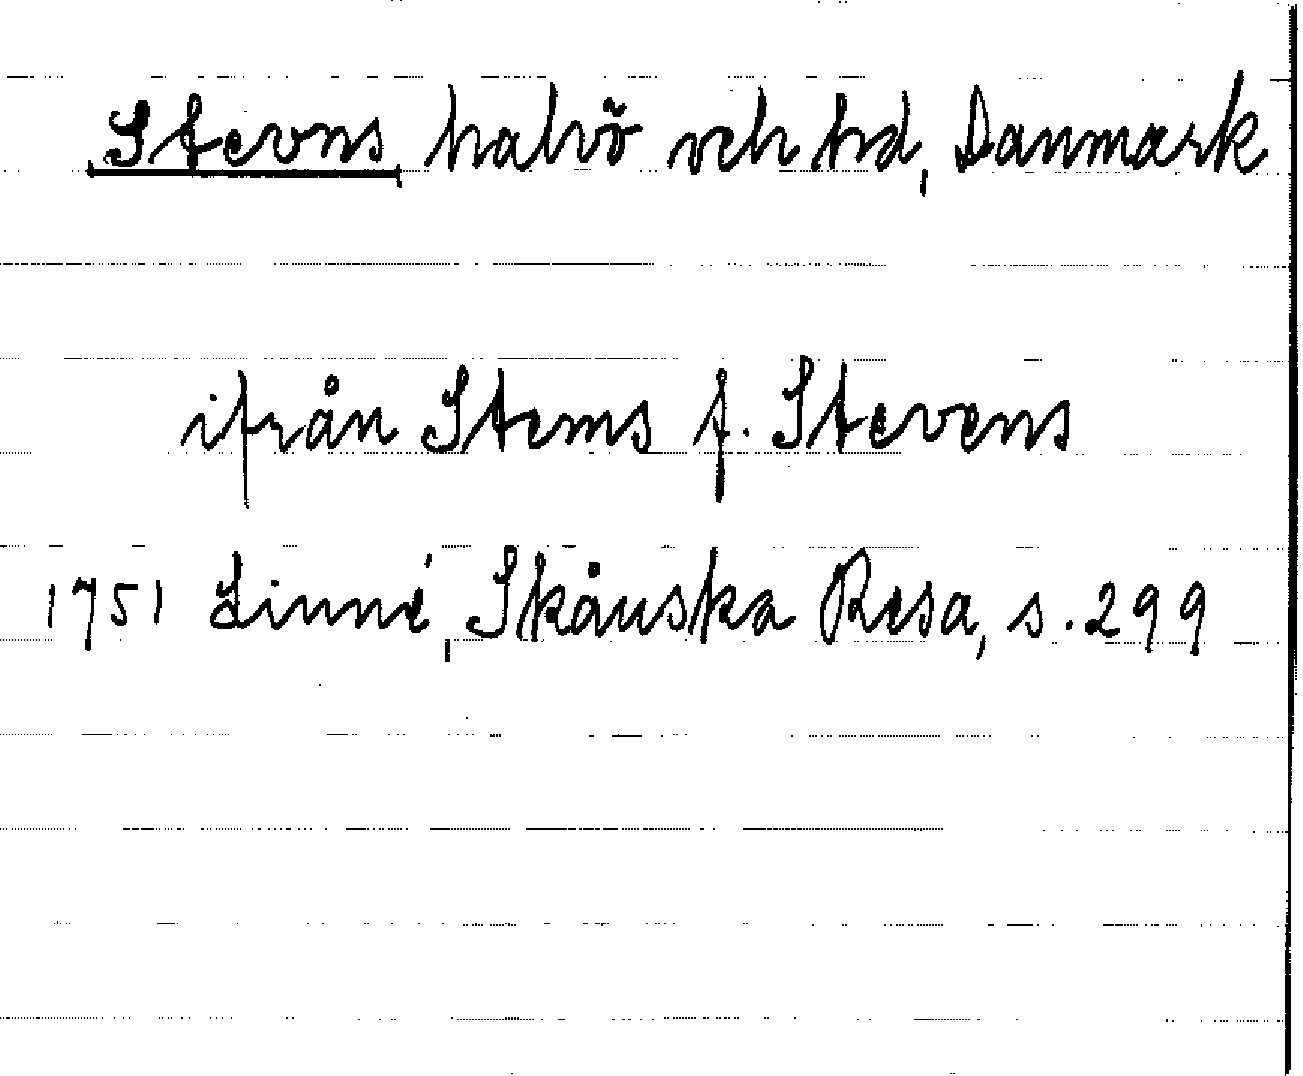 Stevns halvö och hd, Danmark
ifrån Stems f. Stevens
1751 Linné, Skånska Resa, s. 299